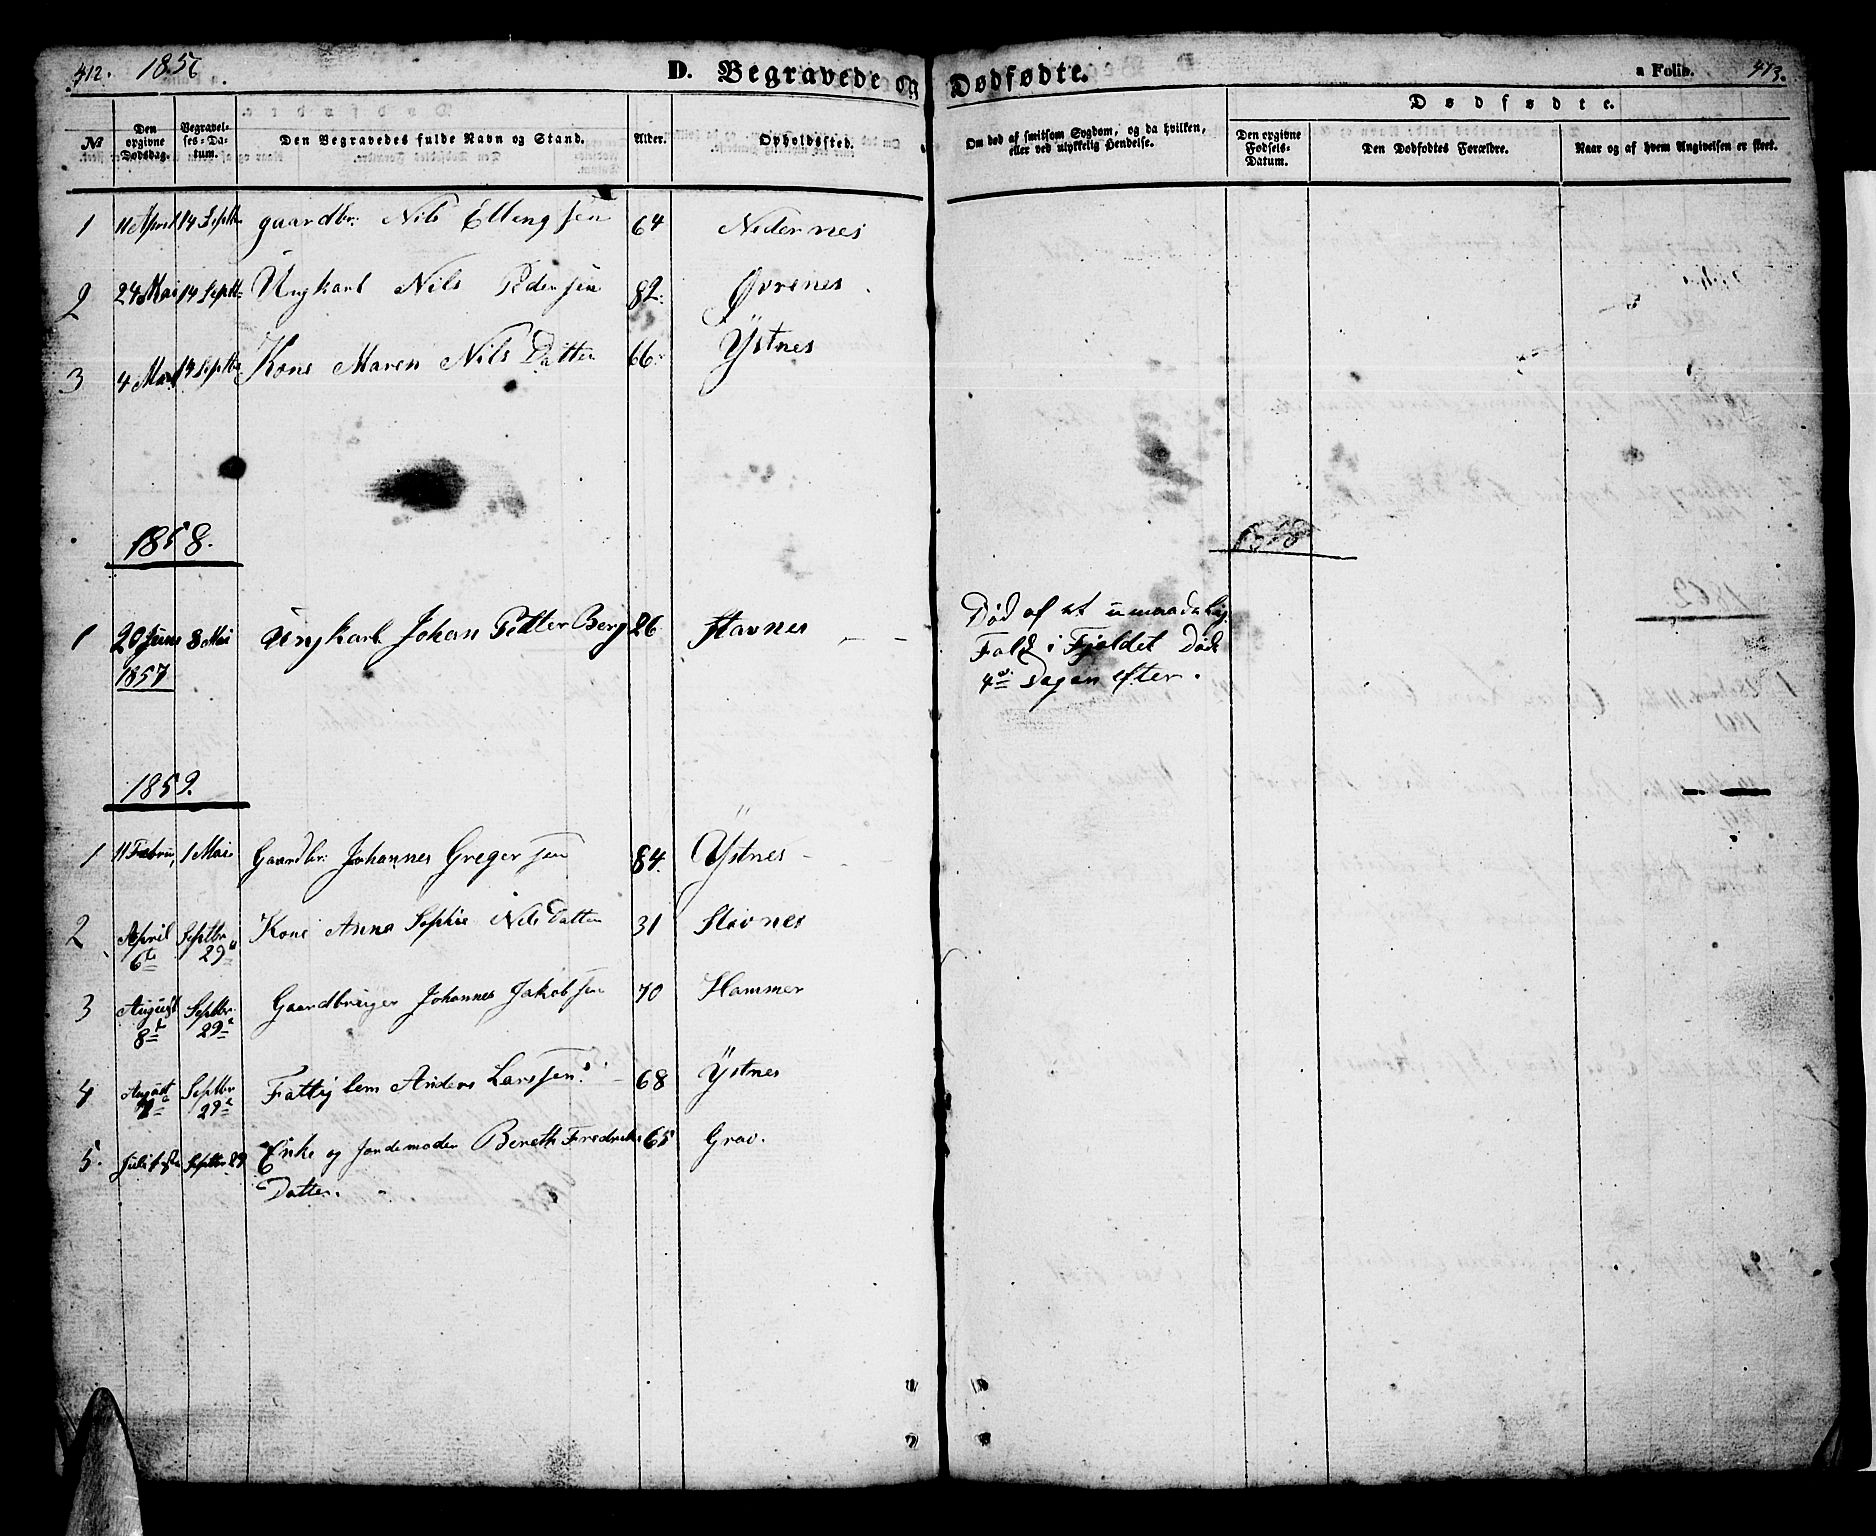 412. 1856 D. Begravede og Dødfødte. a Folio. 413.
Dødfødte.
№ Den opgivne Dødsdag. Begravelses-Datum. Den Begravedes fulde Navn og Stand. Alder. Opholdssted. Om død af smitsom Sygdom, og da hvilken, eller ved ulykkelig Hendelse. Den opgivne Fødsels-Datum. Den Dødfødtes Forældre. Naar og af hvem Angivelsen er skeet.
1 11 April 14 Septbr gaardbr: Nils Ellingsen 64 Nedernes
2 24 Mai 14 Septb Ungkarl Nils Pedersen 82. Øvrenes
3 4 14 Septbr Kone Maren Nils Datter 66 Ystnes
1858. 1858
1 8 Mai Ungkarl Johan Petter Berg 26 Stavnes Død af et umaadelig
1857 Fald i Fjeldet Døde
4de Dagen efter.
1859.
1 11 Febru, 1 Mai Gaardbr: Johannes Gregersen 84. Ystnes
2 April Septbr Kone Anna Sophie Nils Datter 31 Stavnes
6te 29de
3 August Septbr. Gaardbruger Johannes Jakobsen 70 Hammer
8de 29de
4 August Septbr Fattiglem Anders Larssen 68 Ystnes
29de
5. Juli Septbr 29 Enke og Jordemoder Bereth Fredriks 65 Grav.
Datter.